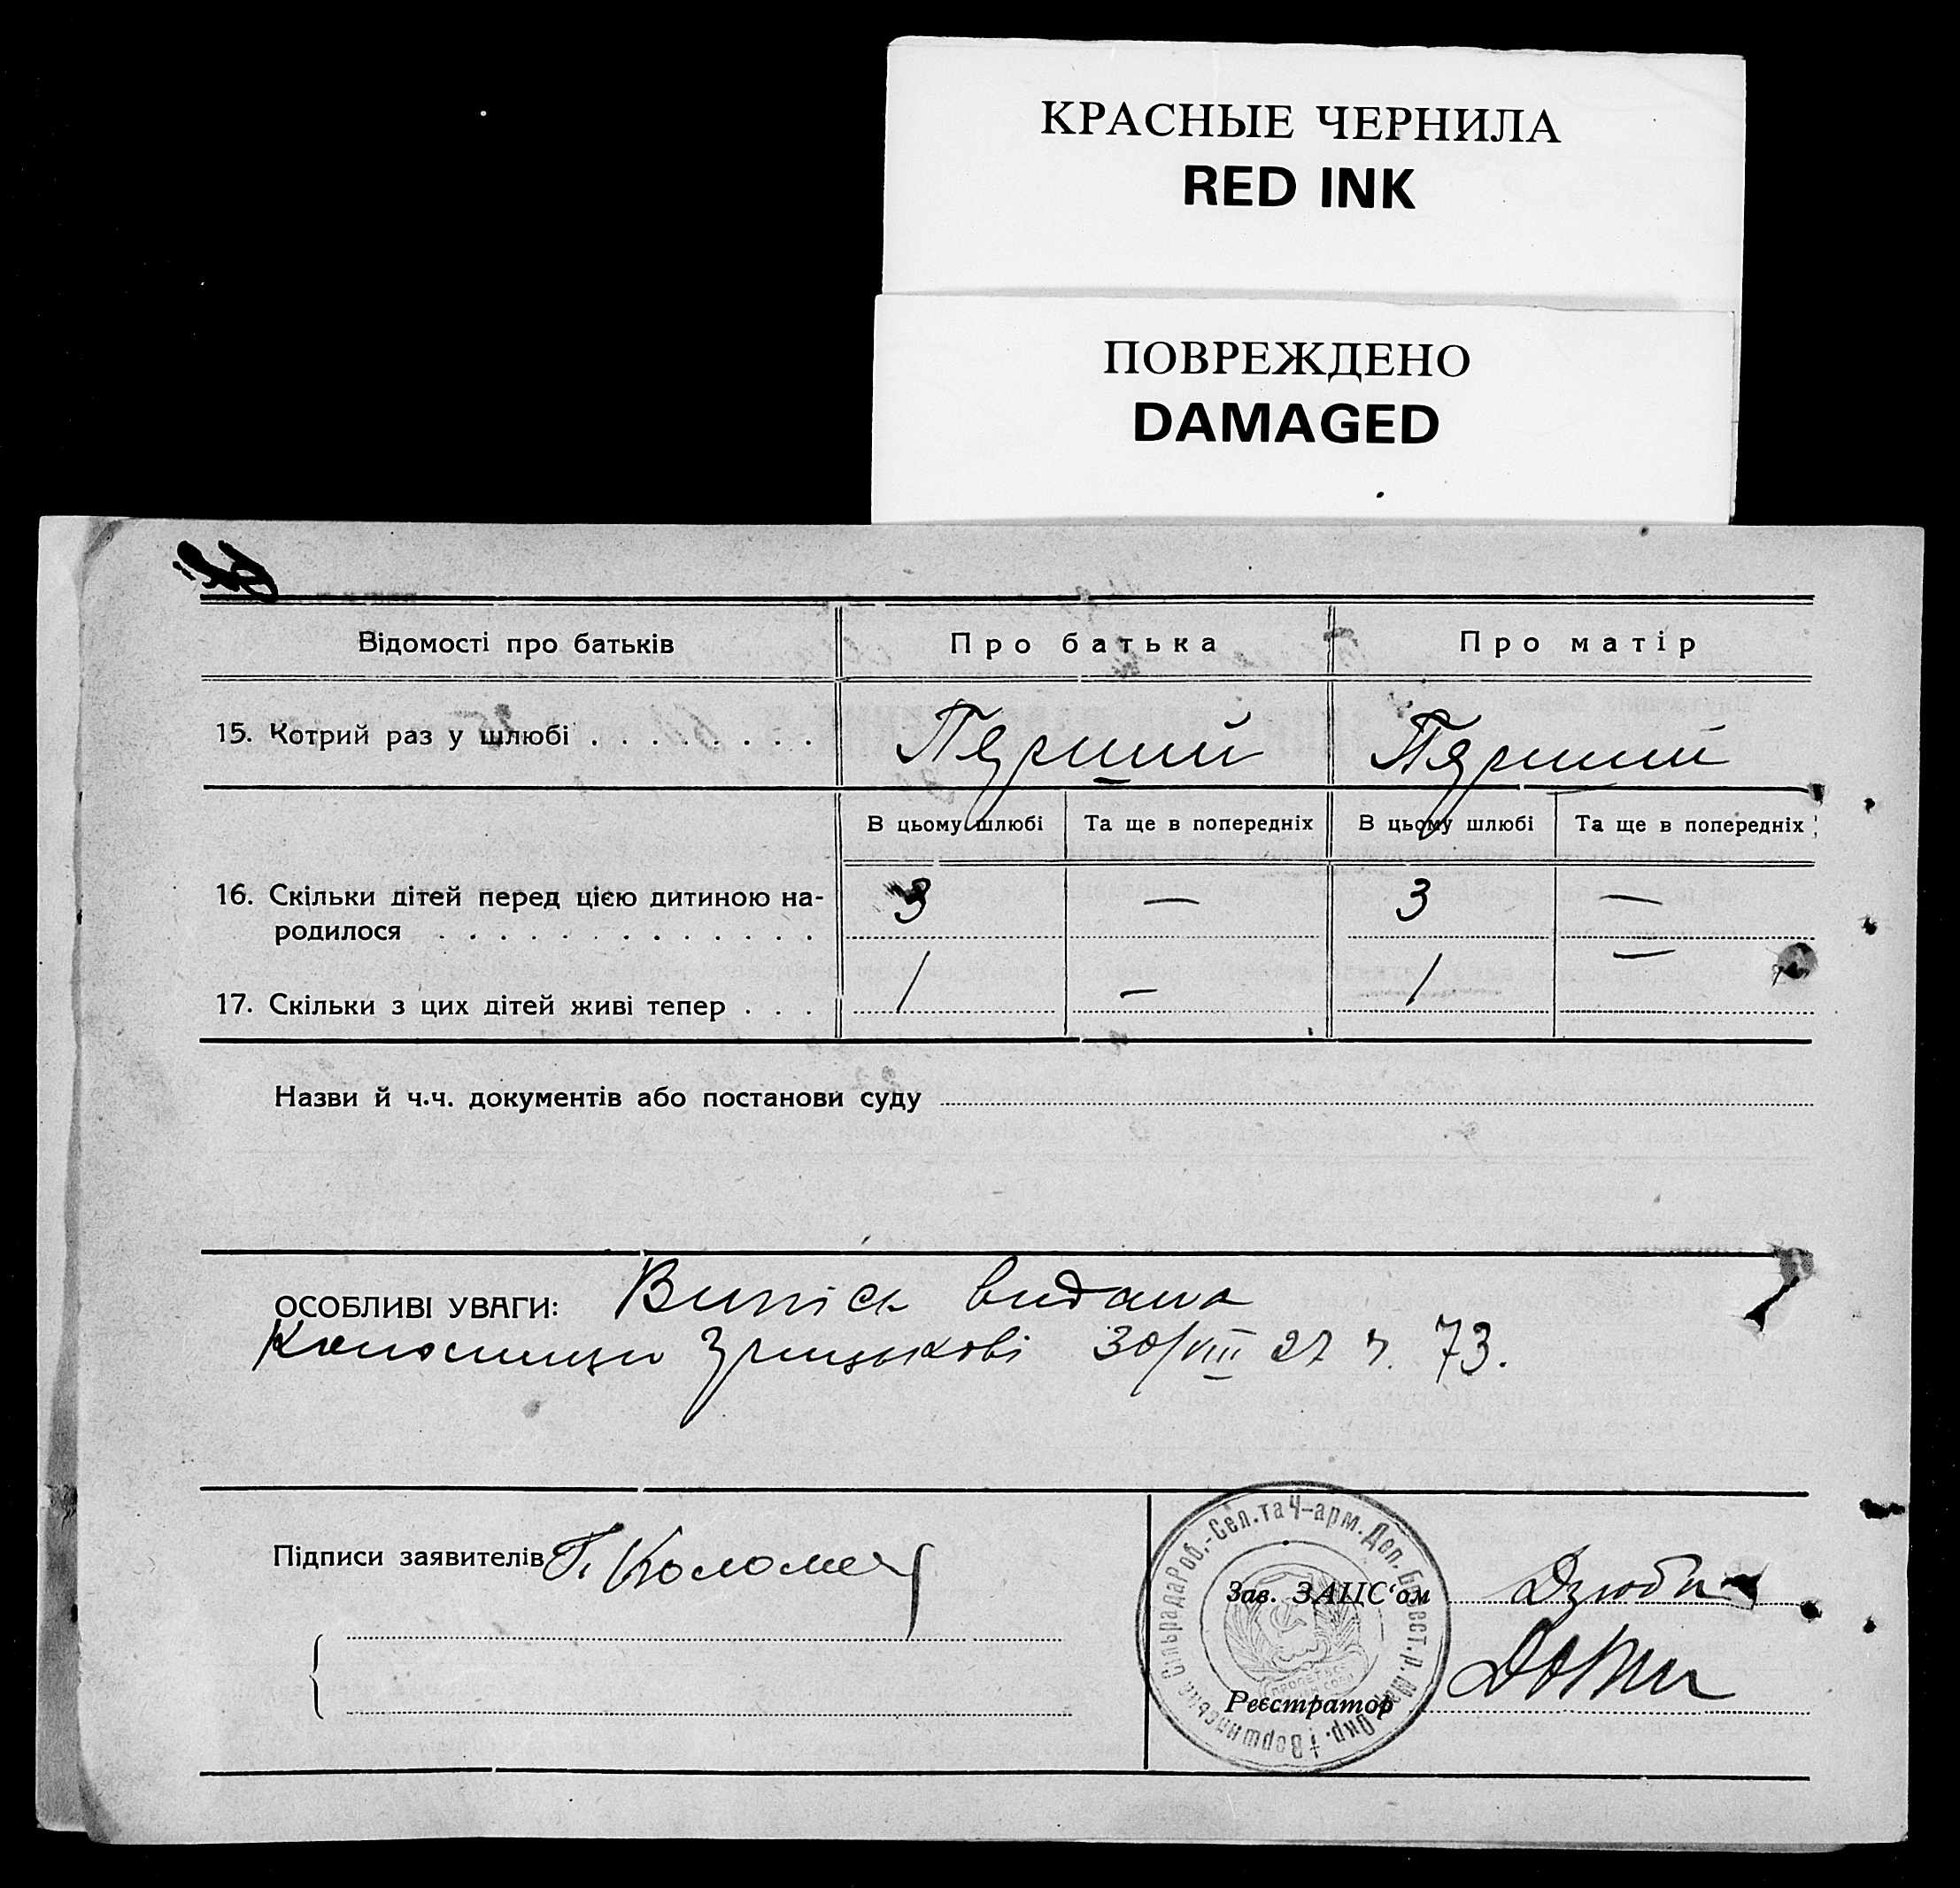 КРАСНЫЕ ЧЕРНИЛА
RED INK
ПОВРЕЖДЕНО
DAMAGED
Відомості про батьків Про батька Про матір
15. Котрий раз у шлюбі . . . . . . . . Перший Перший
В цьому шлюбі Та ще в попередніх В цьому шлюбі Та ще в попередніх
16. Скільки дітей перед цією дитиною на- 3 — 3 —
родилося . . . . . . . . . . . . .
17. Скільки з цих дітей живі тепер . . . 1 — 1 —
Назви й ч.ч. документів або постанови суду
ОСОБЛИВІ УВАГИ: Випісь видана
30/VIII 27 73.
Підписи заявителів Коломе
Зав. ЗАЦС‘ом Дзюба
Реєстратор
Сільрада Роб.-Сел. та Ч-арм. Деп. Окр.